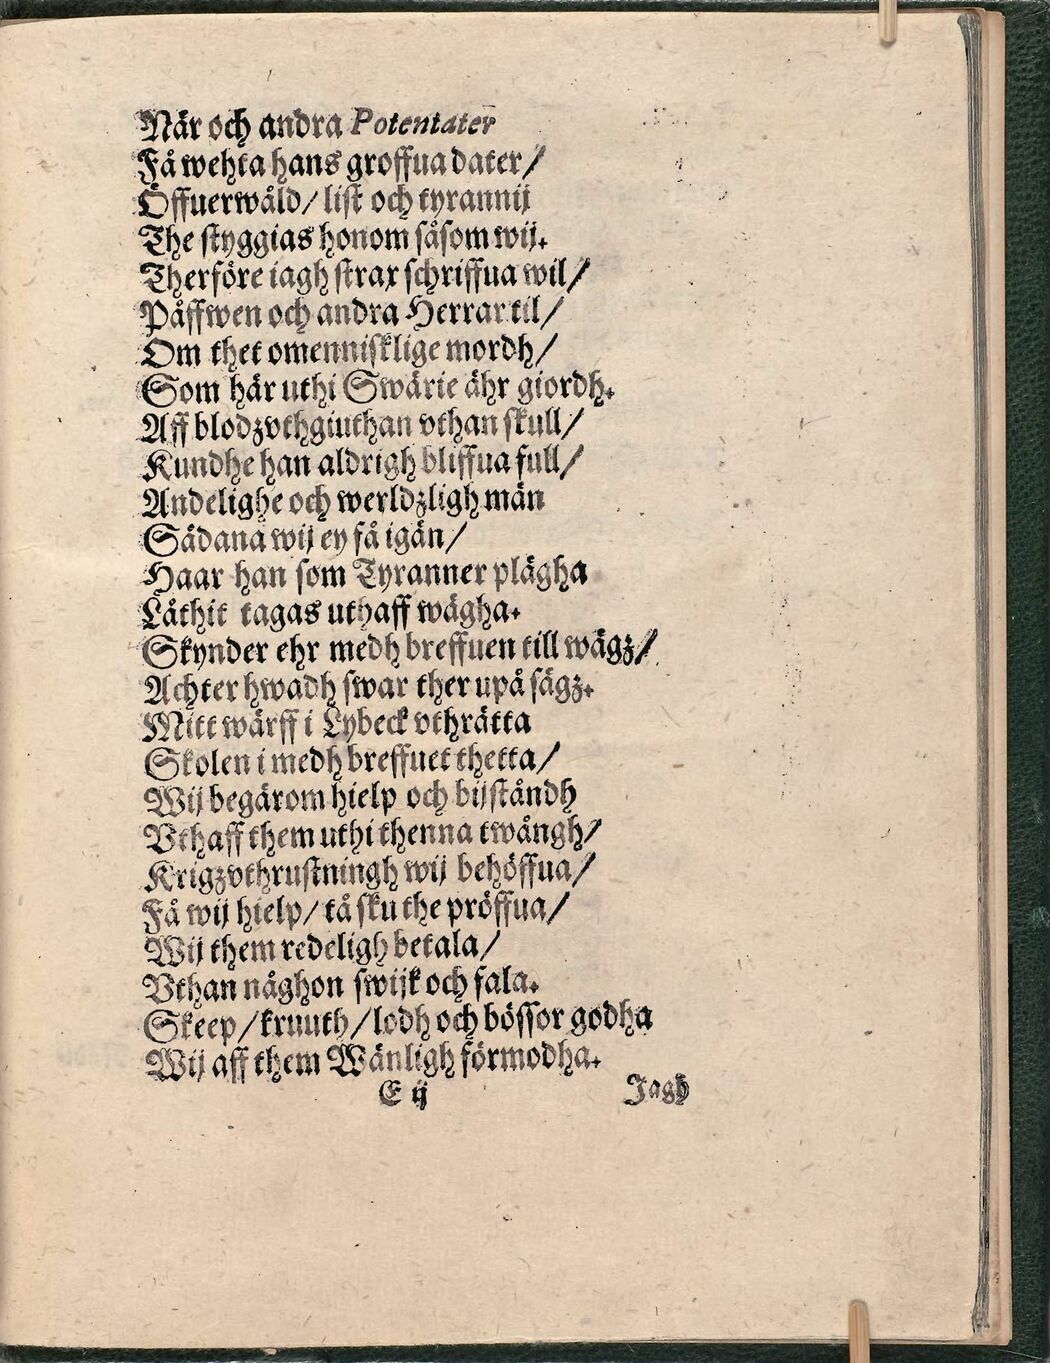 När och andra Potentater
Få wehta hans groffua dater/
Öffuerwåld/ list och tyrannij
The styggias honom såsom wij.
Therföre iagh strax schriffua wil/
Påffwen och andra Herrar til/
Om thet omennisklige mordh/
Som här uthi Swärie ähr giordh.
Aff blodzvthgiuthan vthan skull/
Kundhe han aldrigh bliffua full/
Andelighe och werldzligh män
Sådana wij ey få igän/
Haar han som Tyranner plägha
Låthit tagas uthaff wägha.
Skynder ehr medh breffuen till wägz/
Achter hwadh swar ther upå sägz.
Mitt wärff i Lybeck vthrätta
Skolen i medh breffuet thetta/
Wij begärom hielp och bijståndh
Vthaff them uthi thenna twångh/
Krigzvthrustningh wij behöffua/
Få wij hielp/ tå sku the pröffua/
Wij them redeligh betala/
Vthan någhon swijk och fala.
Skeep/ kruuth/ lodh och bössor godha
Wij aff them Wänligh förmodha.
E ij Jagh